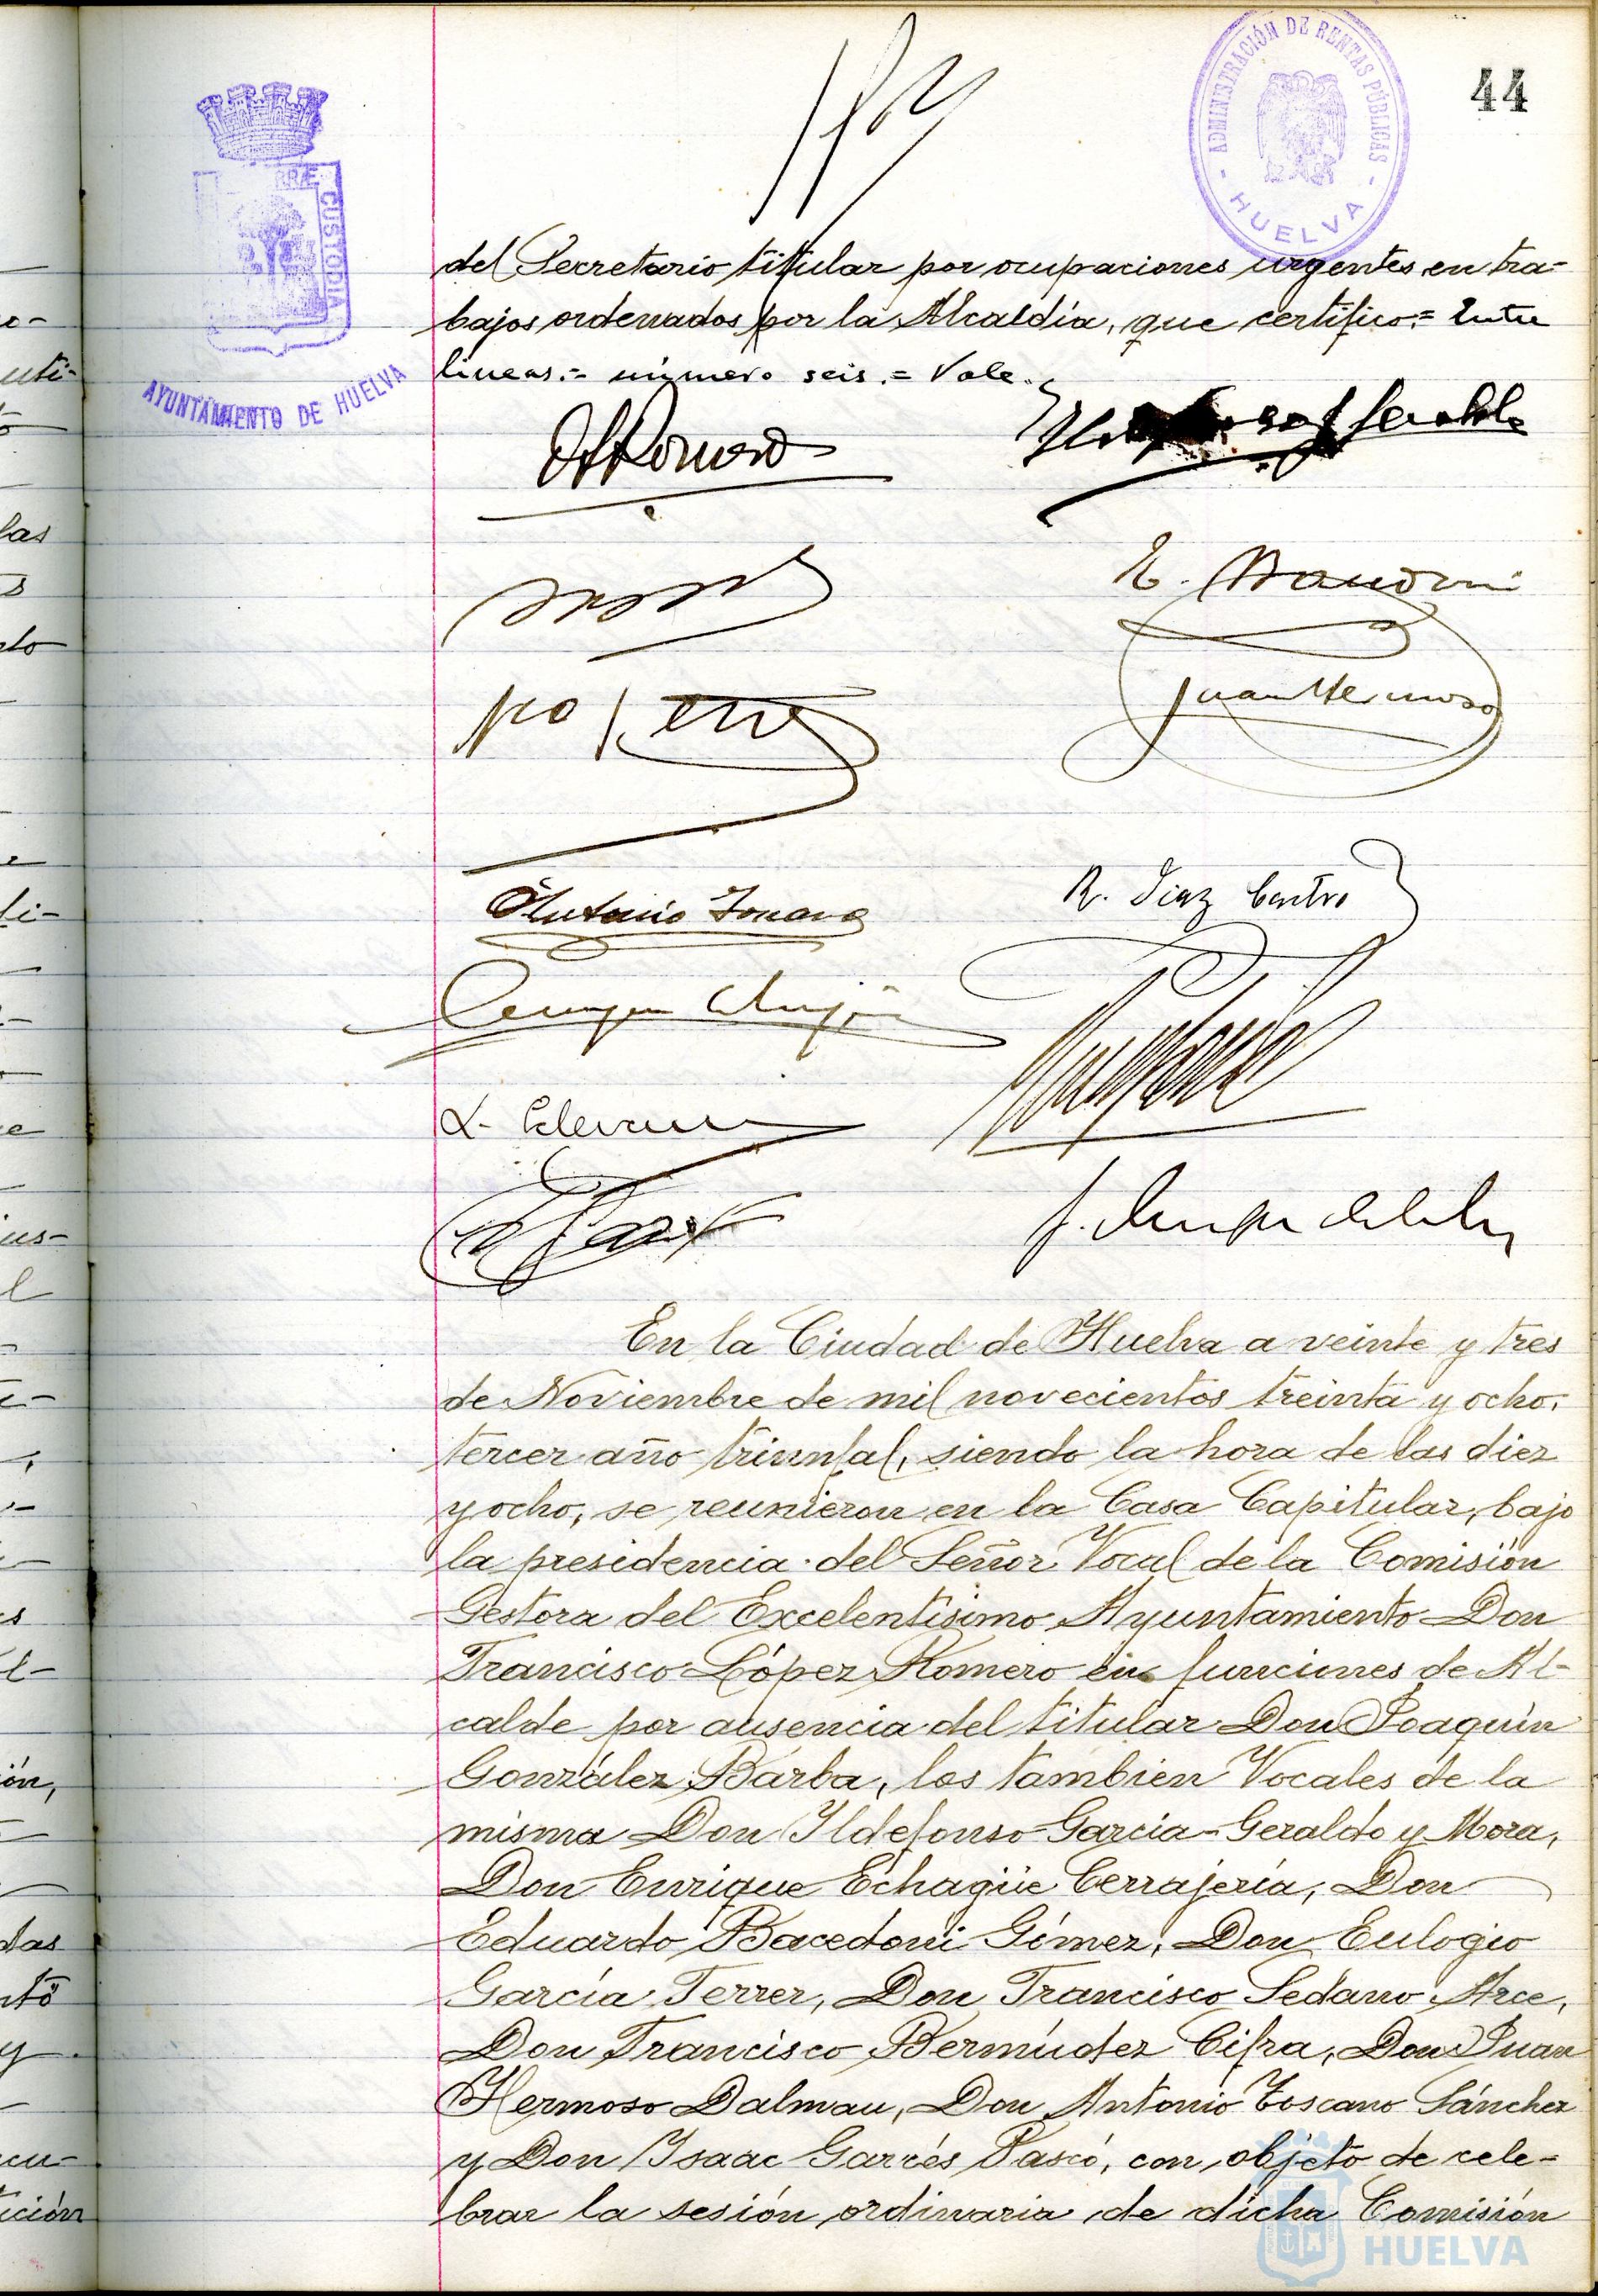 ADMINISTRACIÓN DE RENTAS PÚBLICAS
- HUELVA -
44
RRÆ CUSTODIA
AYUNTAMIENTO DE HUELVA
del Secretario titular por ocupaciones urgentes en tra-
bajos ordenados por la Alcaldía, que certifico:= Entre
lineas.= número seis.= Vale.
Juan Hermoso
R. Diaz Castro
En la Ciudad de Huelva a veinte y tres
de Noviembre de mil novecientos treinta y ocho,
tercer año triunfal, siendo la hora de las diez
y ocho, se reunieron en la Casa Capitular, bajo
la presidencia del Señor Vocal de la Comisión
Gestora del Excelentísimo Ayuntamiento Don
Francisco López Romero en funciones de Al-
calde por ausencia del titular Don Joaquín
González Barba, los tambien Vocales de la
misma Don Ildefonso García-Geraldo y Mora,
Don Enrique Echagüe Cerrajería, Don
Eduardo Bacedoni Gómez, Don Eulogio
García Ferrer, Don Francisco Sedano Arce,
Don Francisco Bermúdez Cifra, Don Juan
Hermoso Dalmau, Don Antonio Toscano Sánchez
y Don Isaac Garcés Pascó, con objeto de cele-
brar la sesión ordinaria de dicha Comisión
HUELVA